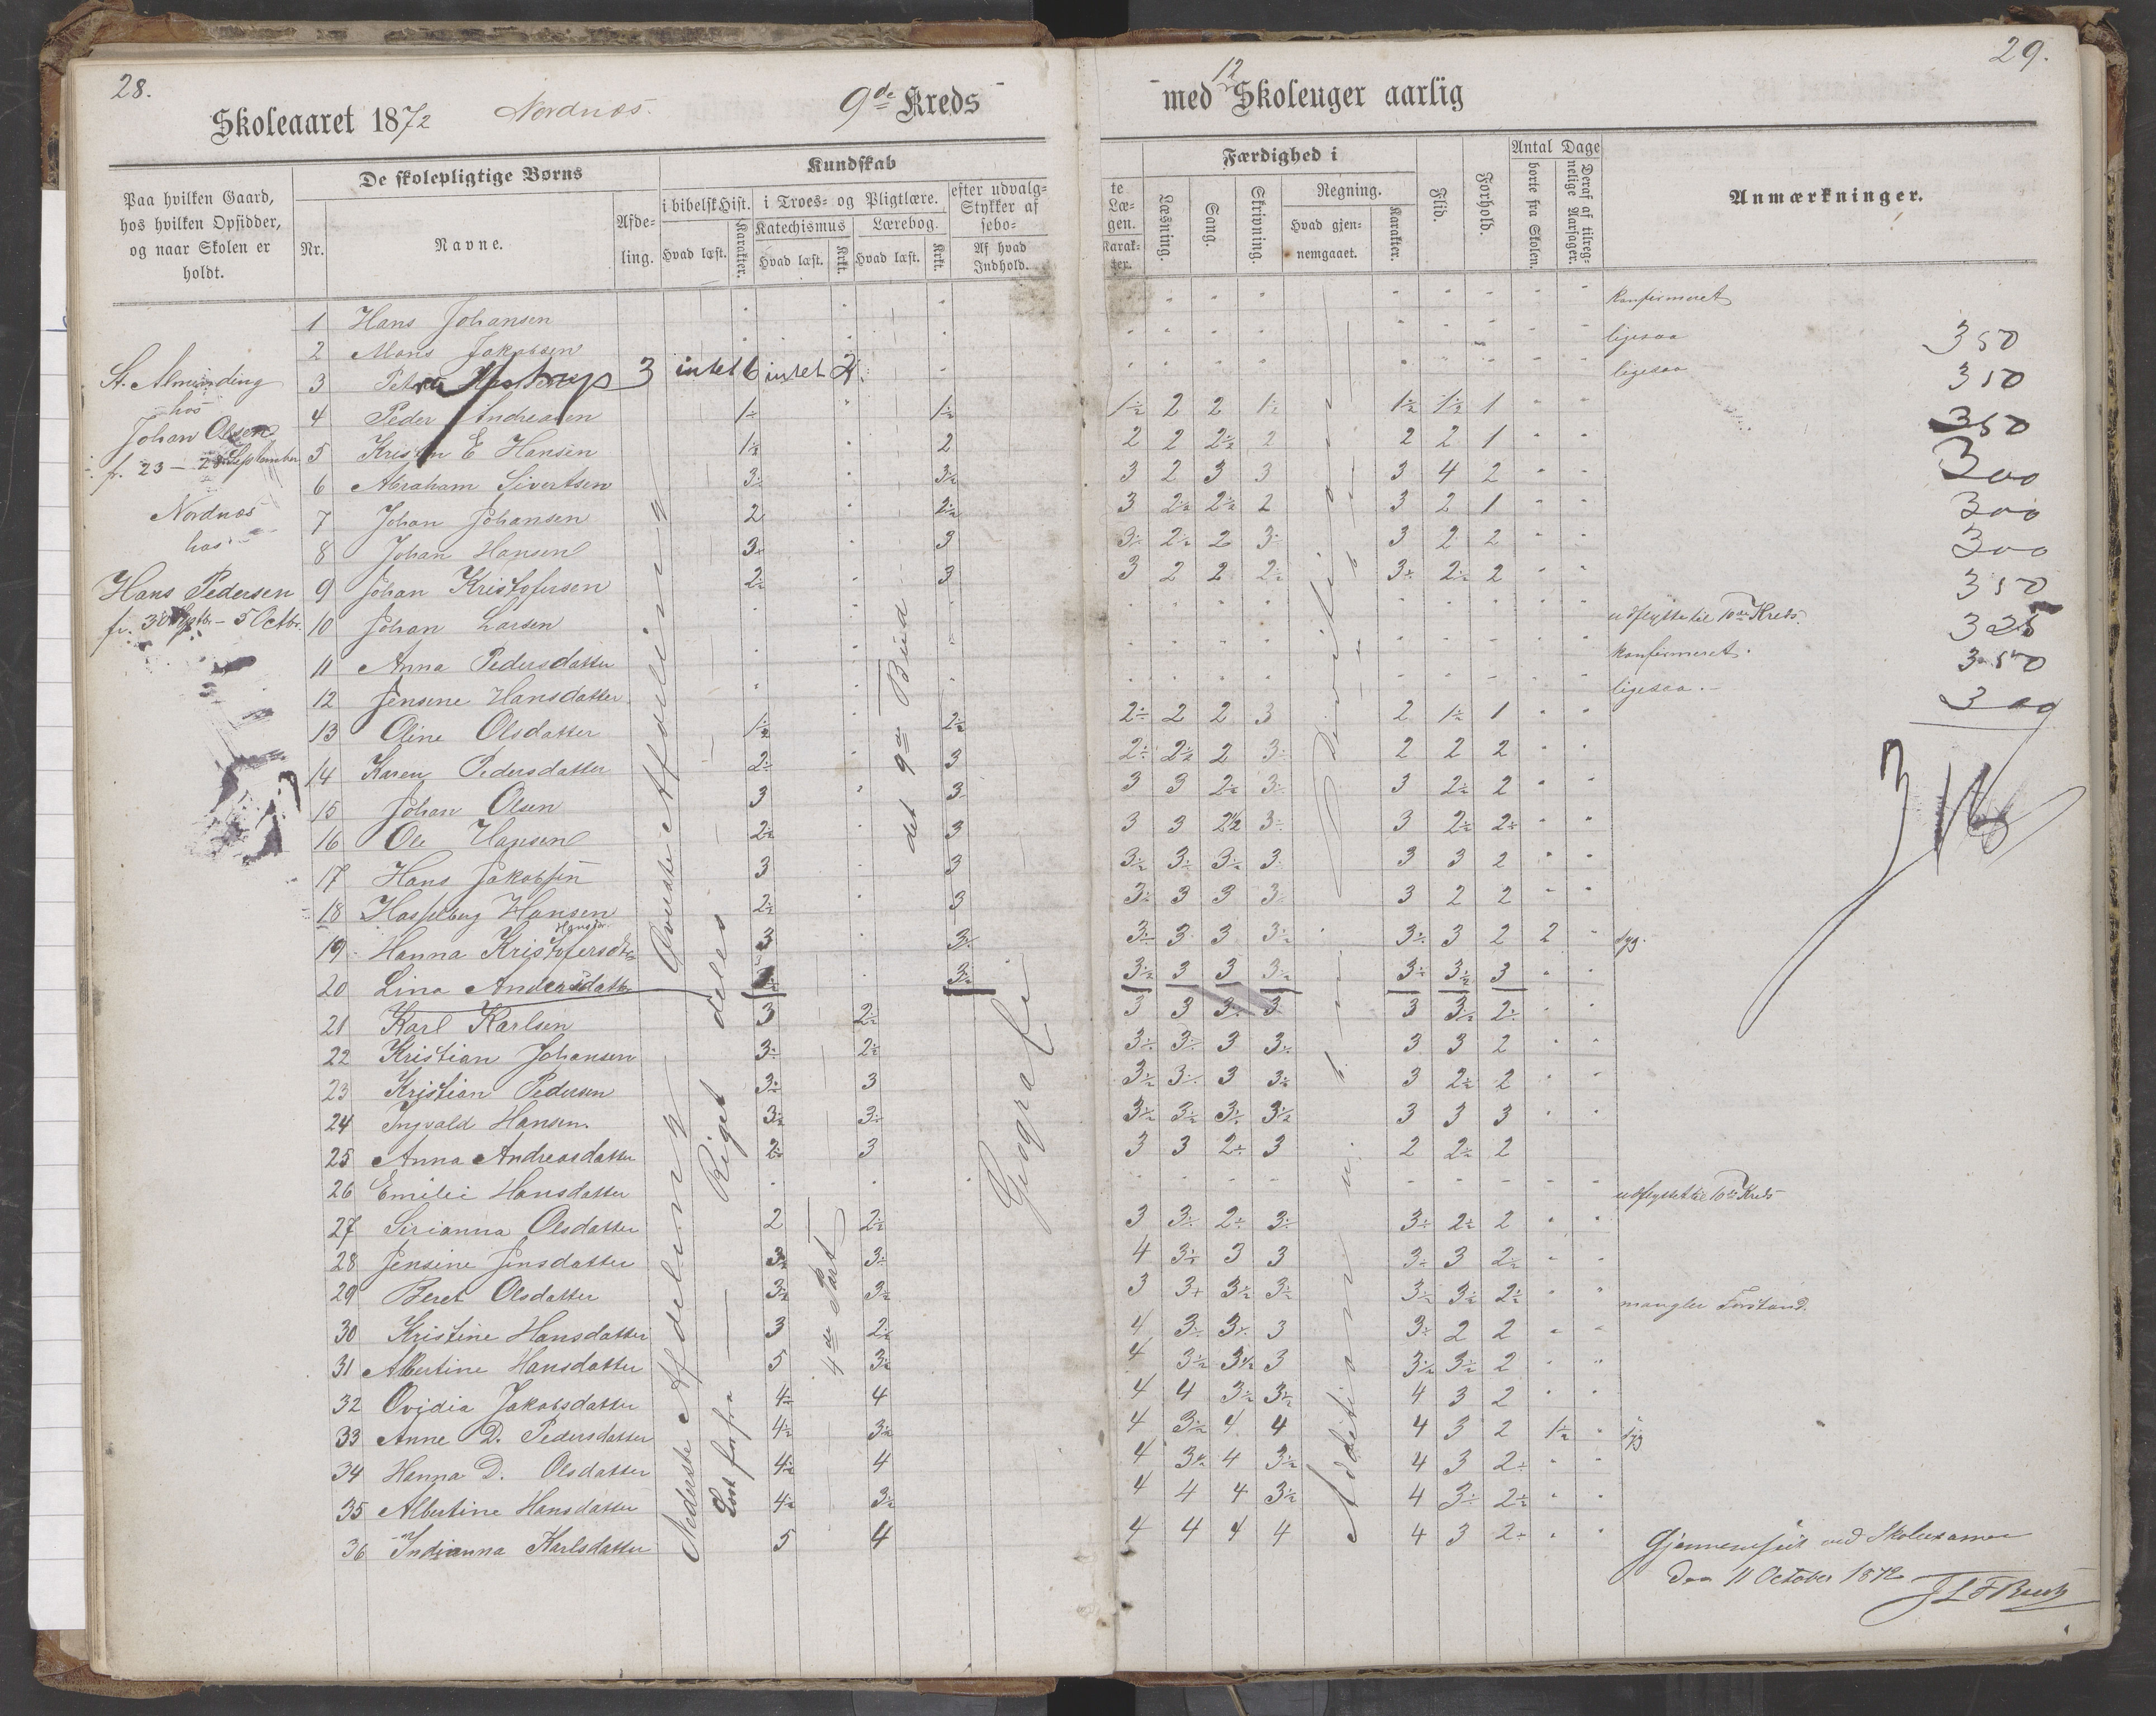 28.
Skoleaaret 1872 Nordnæs. 9de Kreds
Paa hvilken Gaard, hos hvilken Opsidder, og naar Skolen er holdt.
De skolepligtige Børns
Nr. Navne. Afde-ling.
Kundskab
i bibelsk Hist. Hvad læst. Karakter.
i Troes- og Pligtlære.
Katechismus Hvad læst. Krkt.
Lærebog. Hvad læst. Krkt.
efter udvalg-
Stykker af
sebo-
Af hvad Indhold.
St. Almending
hos
Johan Olsen
fr. 23 - 28 September
Nordnæs
hos
Hans Pedersen
fr. 30 Septbr - 5 Octbr.
1 Hans Johansen
2 Mons Jakobsen
3 Petra 3 intet 6 intet
4 Peder Andreasen 1½ 1½
5 Kristen E Hansen 1½ 2
6 Abraham Sivertsen 3÷ 3½
7 Johan Johansen 2 2½
8 Johan Hansen 3÷ 3
9 Johan Kristofersen 2÷ 3
10 Johan Larsen
11 Anna Pedersdatter
12 Jensine Hansdatter
13 Oline Olsdatter 1½ 2½
14 Karen Pedersdatter 2÷ 3
15 Johan Olsen 3 3
16 Ole Hansen 2½ 3
17 Hans Jakobsen 3 3
18 Hasselberg Hansen 2½ 3
19 Hanna Kristofersdtr 3 3÷
20 Lina Andersdatter 3½
21 Karl Karlsen 3 2½
22 Kristian Johansen 3÷ 2½
23 Kristian Pedersen 3÷ 3
24 Ingvald Hansen. 3½ 3÷
25 Anna Andreasdatter 2÷ 3
26 Emilie Hansdatter
27 Sirianna Olsdatter 2 2½
28 Jensine Jensdatter 3½ 3÷
29 Beret Olsdatter 3½ 3½
30 Kristine Hansdatter 3 2½
31 Albertine Hansdatter 5 3½
32 Ovidia Jakobsdatter 4÷ 4
33 Anne D. Pedersdatter 4½ 3½
34 Hanna D. Olsdatter 4½ 4
35 Albertine Hansdatter 4½ 3½
36 Indianna Karlsdatter 5 4
Øverste Afdeling
Nederste Afdeling
Læst forfra
Riget deles
4de Part
det 9de Bud
Geografi
29.
med 12 Skoleuger aarlig
te Læ-gen. Karak-ter.
Færdighed i
Læsning. Sang. Skrivning.
Regning. Hvad gjen-nemgaaet. Karakter.
Flid. Forhold.
Antal Dage
borte fra Skolen.
Deraf af tilreg-nelige Aarsager.
Anmærkninger.
konfirmeret
ligesaa 350
ligesaa 350
1½ 2 2 1½ 1½ 1½ 1 350
2 2 2½ 2 2 2 1 300
3 2 3 3 3 4 2 300
3 2½ 2½ 2 3 2 1 300
3÷ 2½ 2 3÷ 3 2 2 350
3 2 2 2½ 3÷ 2½ 2 325
udflyttet til 10de Kreds. 350
konfirmeret. 300
ligesaa.
2÷ 2 2 3 2 1½ 1
2÷ 2½ 2 3÷ 2 2 2
3 3 2½ 3÷ 3 2½ 2
3 3 2½ 3÷ 3 2½ 2÷
3½ 3÷ 3½ 3 3 3 2
3÷ 3 3 3÷ 3 2 2
3÷ 3 3 3½ 3÷ 3 2 2 syg.
3½ 3 3 3½ 3÷ 3½ 3
3 3 3÷ 3 3 3½ 2÷
3÷ 3÷ 3 3÷ 3 3 2
3½ 3÷ 3 3½ 3 2½ 2
3½ 3½ 3½ 3½ 3 3 3
3 3 2÷ 3 2 2½ 2
udflyttet til 10de Kreds
3 3÷ 2÷ 3÷ 3÷ 2½ 2
4 3½ 3 3 3÷ 3 2½
3 3+ 3½ 3½ 3½ 3½ 2½ mangler Forstand.
4 3÷ 3÷ 3 3÷ 2 2
4 3½ 3½ 3 3½ 3½ 2
4 4 3½ 3½ 4 3 2
4 3½ 4 4 4 3 2 1½ syg
4 3½ 4 3½ 4 3 2÷
4 4 4 3½ 4 3÷ 2½
4 4 4 4 4 3 2÷
Addition
Gjennemseet ved Skolexamen
den 11 October 1872